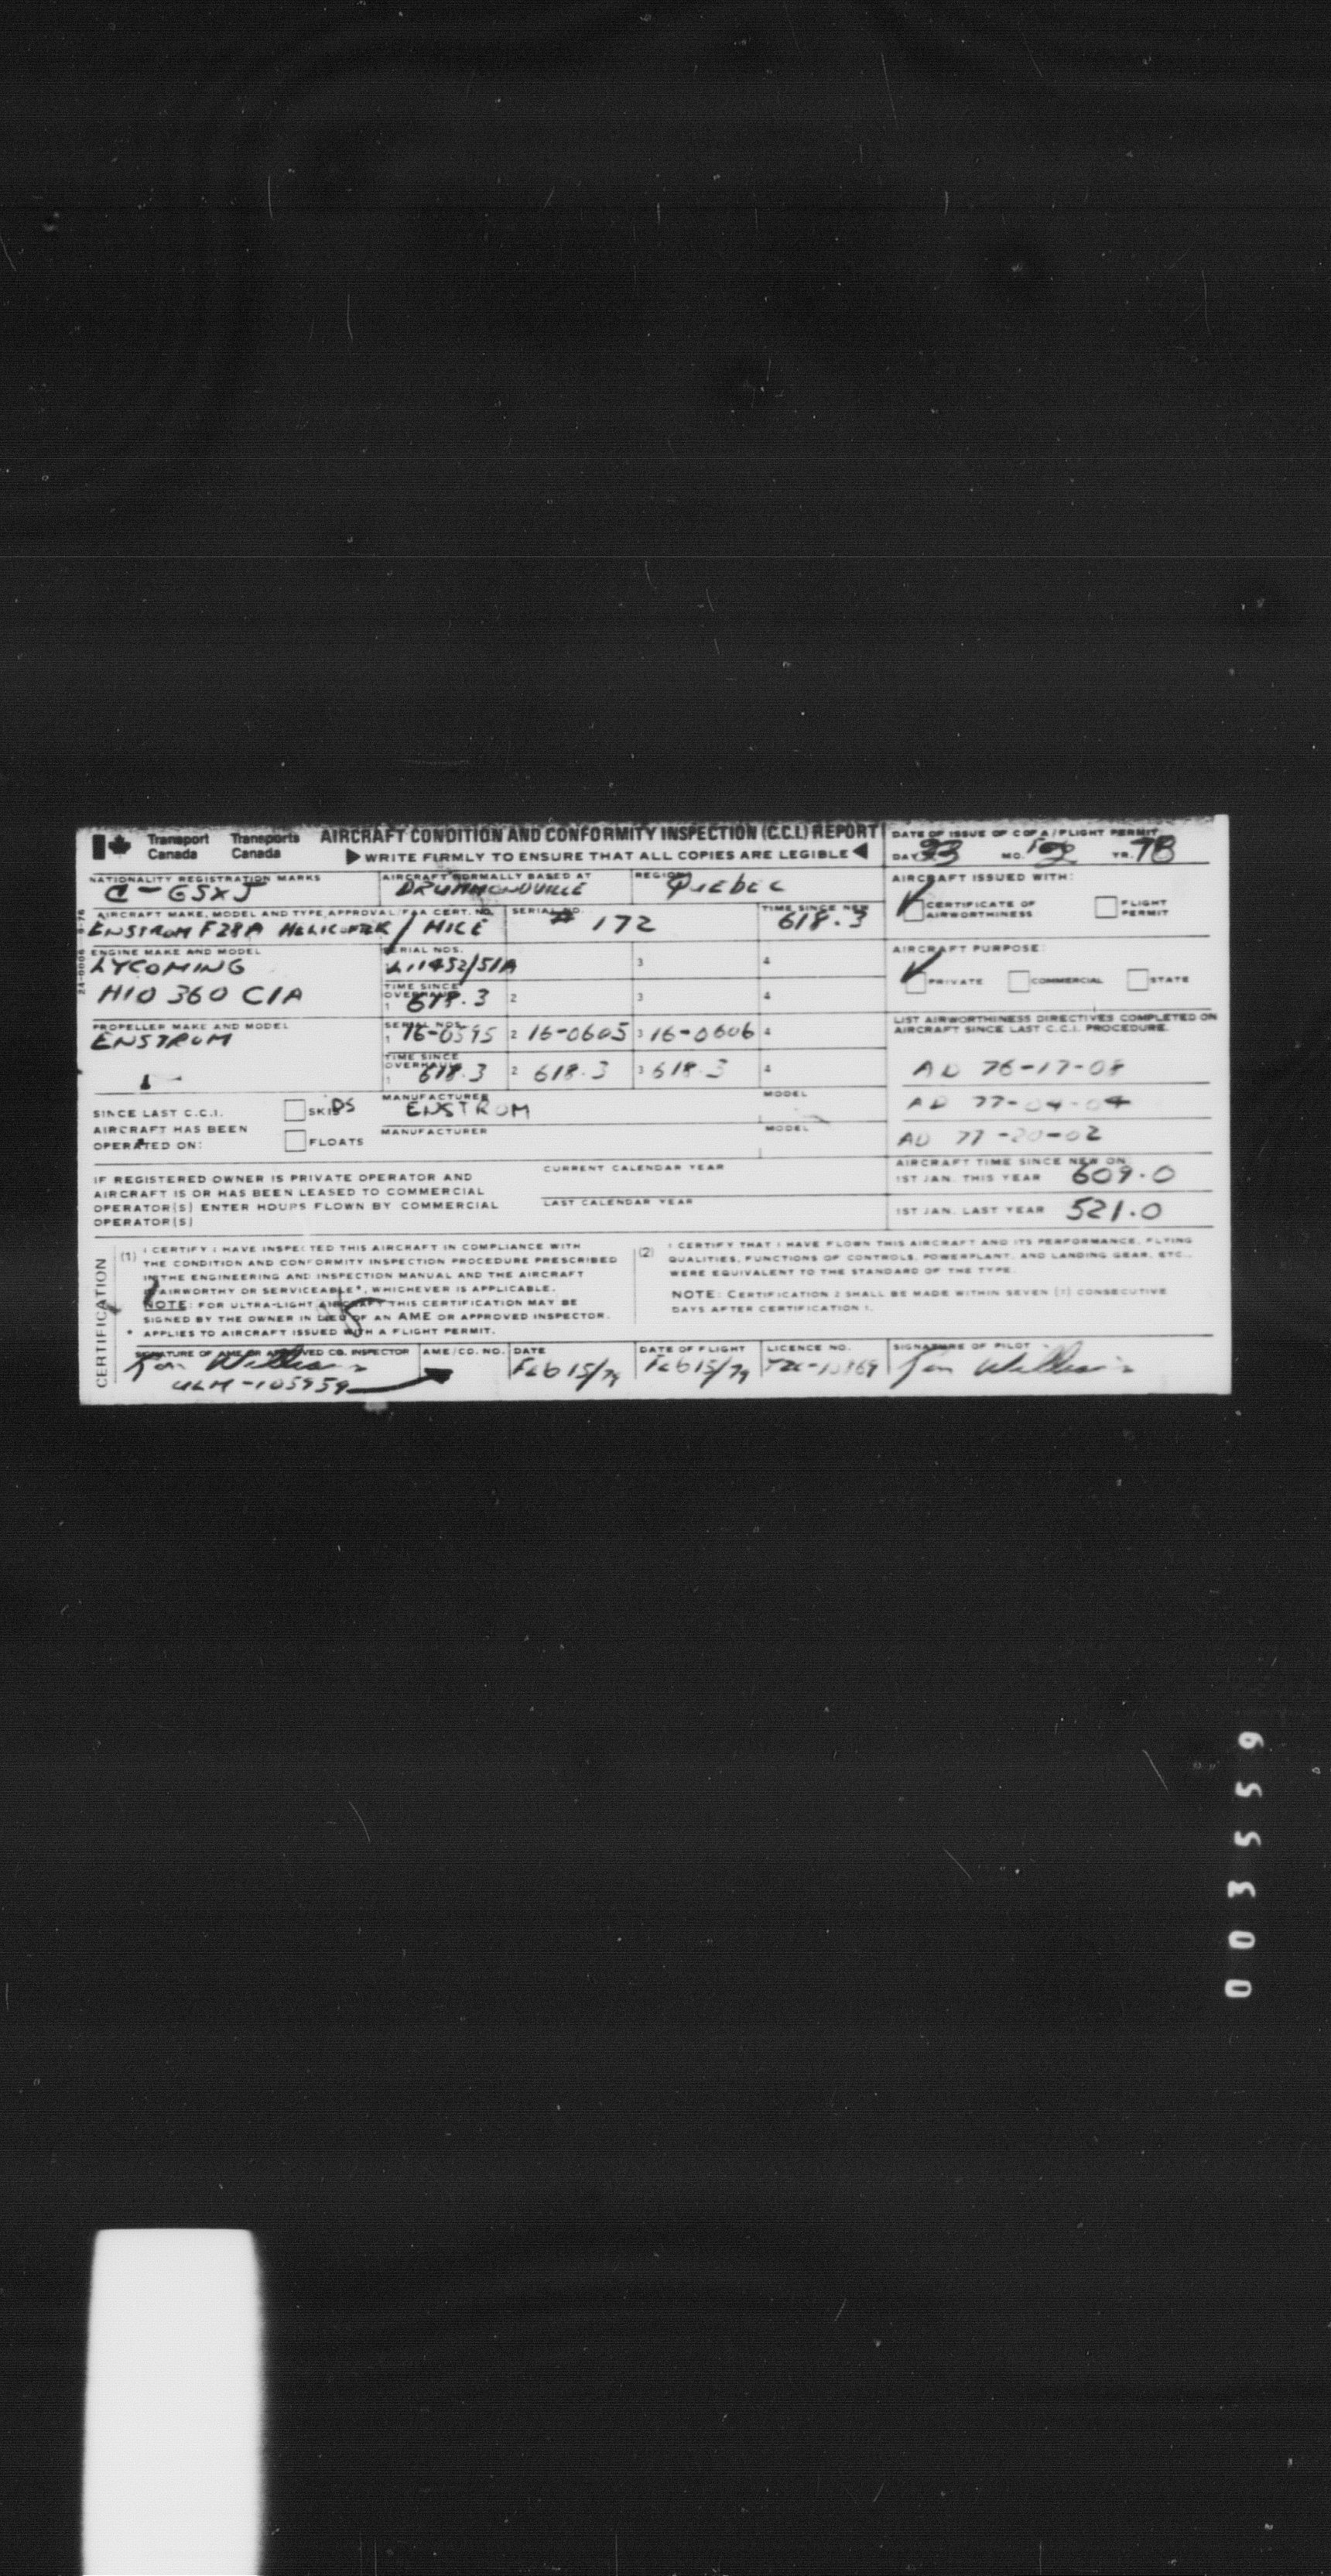 Transport Canada Transports Canada
AIRCRAFT CONDITION AND CONFORMITY INSPECTION (C.C.I.) REPORT
WRITE FIRMLY TO ENSURE THAT ALL COPIES ARE LEGIBLE
DATE OF ISSUE OF C OF A/FLIGHT PERMIT
DAY MO. YR. 78
NATIONALITY REGISTRATION MARKS
C-GSXJ
AIRCRAFT NORMALLY BASED AT
DRUMMONDVILLE
REGION
QUEBEC
AIRCRAFT ISSUED WITH:
CERTIFICATE OF AIRWORTHINESS
FLIGHT PERMIT
AIRCRAFT MAKE, MODEL AND TYPE APPROVAL/FAA CERT. NO.
ENSTROM F28A HELICOPTER / H1CE
SERIAL NO.
# 172
TIME SINCE NEW
618.3
ENGINE MAKE AND MODEL
LYCOMING
HIO 360 C1A
SERIAL NOS.
3 4
TIME SINCE OVERHAUL
1 618.3 2 3 4
AIRCRAFT PURPOSE
PRIVATE COMMERCIAL STATE
PROPELLER MAKE AND MODEL
ENSTROM
SERIAL NOS.
1 16-0595 2 16-0605 3 16-0606 4
TIME SINCE OVERHAUL
1 618.3 2 618.3 3 618.3 4
LIST AIRWORTHINESS DIRECTIVES COMPLETED ON
AIRCRAFT SINCE LAST C.C.I. PROCEDURE.
AD 76-17-08
AD 77-04-04
AD 77-20-02
SINCE LAST C.C.I.
AIRCRAFT HAS BEEN
OPERATED ON:
SKIDS
FLOATS
MANUFACTURER
ENSTROM
MODEL
MANUFACTURER
MODEL
IF REGISTERED OWNER IS PRIVATE OPERATOR AND
AIRCRAFT IS OR HAS BEEN LEASED TO COMMERCIAL
OPERATOR(S) ENTER HOURS FLOWN BY COMMERCIAL
OPERATOR(S)
CURRENT CALENDAR YEAR
LAST CALENDAR YEAR
AIRCRAFT TIME SINCE NEW ON
1ST JAN. THIS YEAR 609.0
1ST JAN. LAST YEAR 521.0
CERTIFICATION
(1) I CERTIFY I HAVE INSPECTED THIS AIRCRAFT IN COMPLIANCE WITH
THE CONDITION AND CONFORMITY INSPECTION PROCEDURE PRESCRIBED
IN THE ENGINEERING AND INSPECTION MANUAL AND THE AIRCRAFT
IS AIRWORTHY OR SERVICEABLE*, WHICHEVER IS APPLICABLE.
NOTE: FOR ULTRA-LIGHT AIRCRAFT THIS CERTIFICATION MAY BE
SIGNED BY THE OWNER IN LIEU OF AN AME OR APPROVED INSPECTOR.
* APPLIES TO AIRCRAFT ISSUED WITH A FLIGHT PERMIT.
(2) I CERTIFY THAT I HAVE FLOWN THIS AIRCRAFT AND ITS PERFORMANCE, FLYING
QUALITIES, FUNCTIONS OF CONTROLS, POWERPLANT, AND LANDING GEAR, ETC.,
WERE EQUIVALENT TO THE STANDARD OF THE TYPE.
NOTE: CERTIFICATION 2 SHALL BE MADE WITHIN SEVEN (7) CONSECUTIVE
DAYS AFTER CERTIFICATION 1.
SIGNATURE OF AME OR APPROVED CO. INSPECTOR
AME/CO. NO.
ULM-105959
DATE
Feb 15/79
DATE OF FLIGHT
Feb 15/79
LICENCE NO.
SIGNATURE OF PILOT
003559